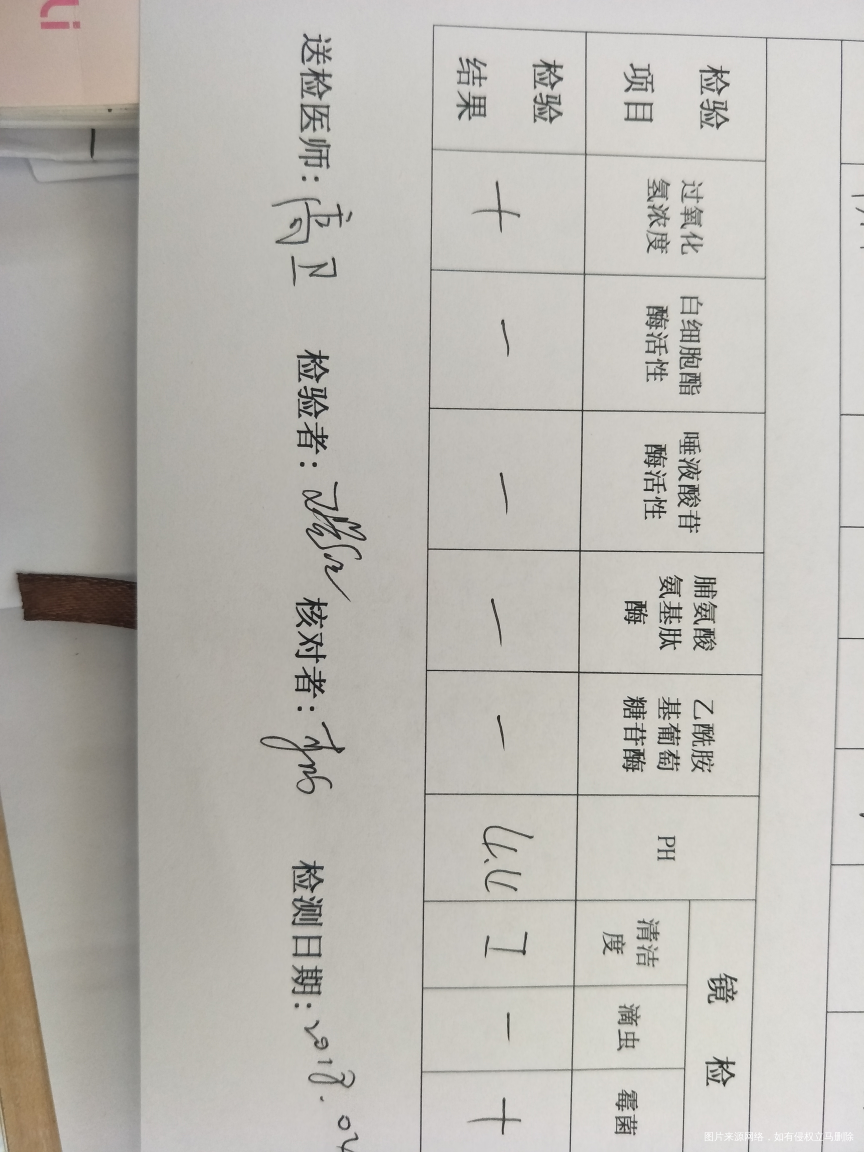 检验项目 过氧化氢浓度 白细胞酯酶活性 唾液酸苷酶活性 脯氨酸氨基肽酶 乙酰胺基葡萄糖苷酶 PH 镜 检
清洁度 滴虫 霉菌
检验结果 + - - - - 4.4 I - +
送检医师: 高卫 检验者: 核对者: 检测日期: 2018.04
图片来源网络，如有侵权立马删除